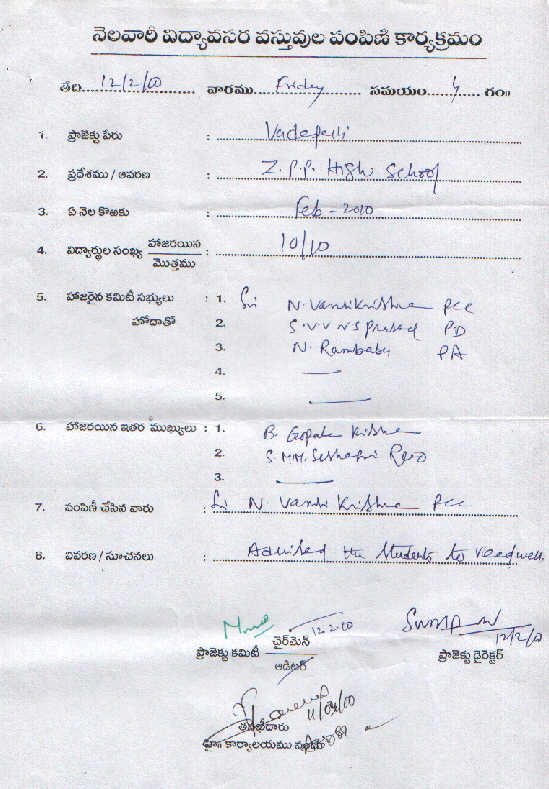 నెలవారీ విద్యావసర వస్తువుల పంపిణి కార్యక్రమం
తేది. 12/2/00 వారము. Friday సమయం 4 గం॥
1. ప్రాజెక్టు పేరు : Vadapalli
2. ప్రదేశము / ఆవరణ : Z.P.P. High School
3. ఏ నెల కొఱకు : Feb - 2010
4. విద్యార్థుల సంఖ్య హాజరయిన / మొత్తము : 10/10
5. హాజరైన కమిటీ సభ్యులు : 1. Sri N. Vamsi Krishna PCC
హోదాతో 2. S.V.V.N.S Prasad PD
3. N. Rambabu PA
4. —
5. —
6. హాజరయిన ఇతర ముఖ్యులు : 1. B. Gopala Krishna
2. S.M.M. Seshagiri
3. —
7. పంపిణీ చేసిన వారు : Sri N. Vamsi Krishna PCC
8. వివరణ / సూచనలు : Advised the students to read well.
12.2.00
ఛైర్‌మెన్
ప్రాజెక్టు కమిటీ
ఆడిటర్
12/2/00
ప్రాజెక్టు డైరెక్టర్
తనిఖీదారు
కార్యాలయము